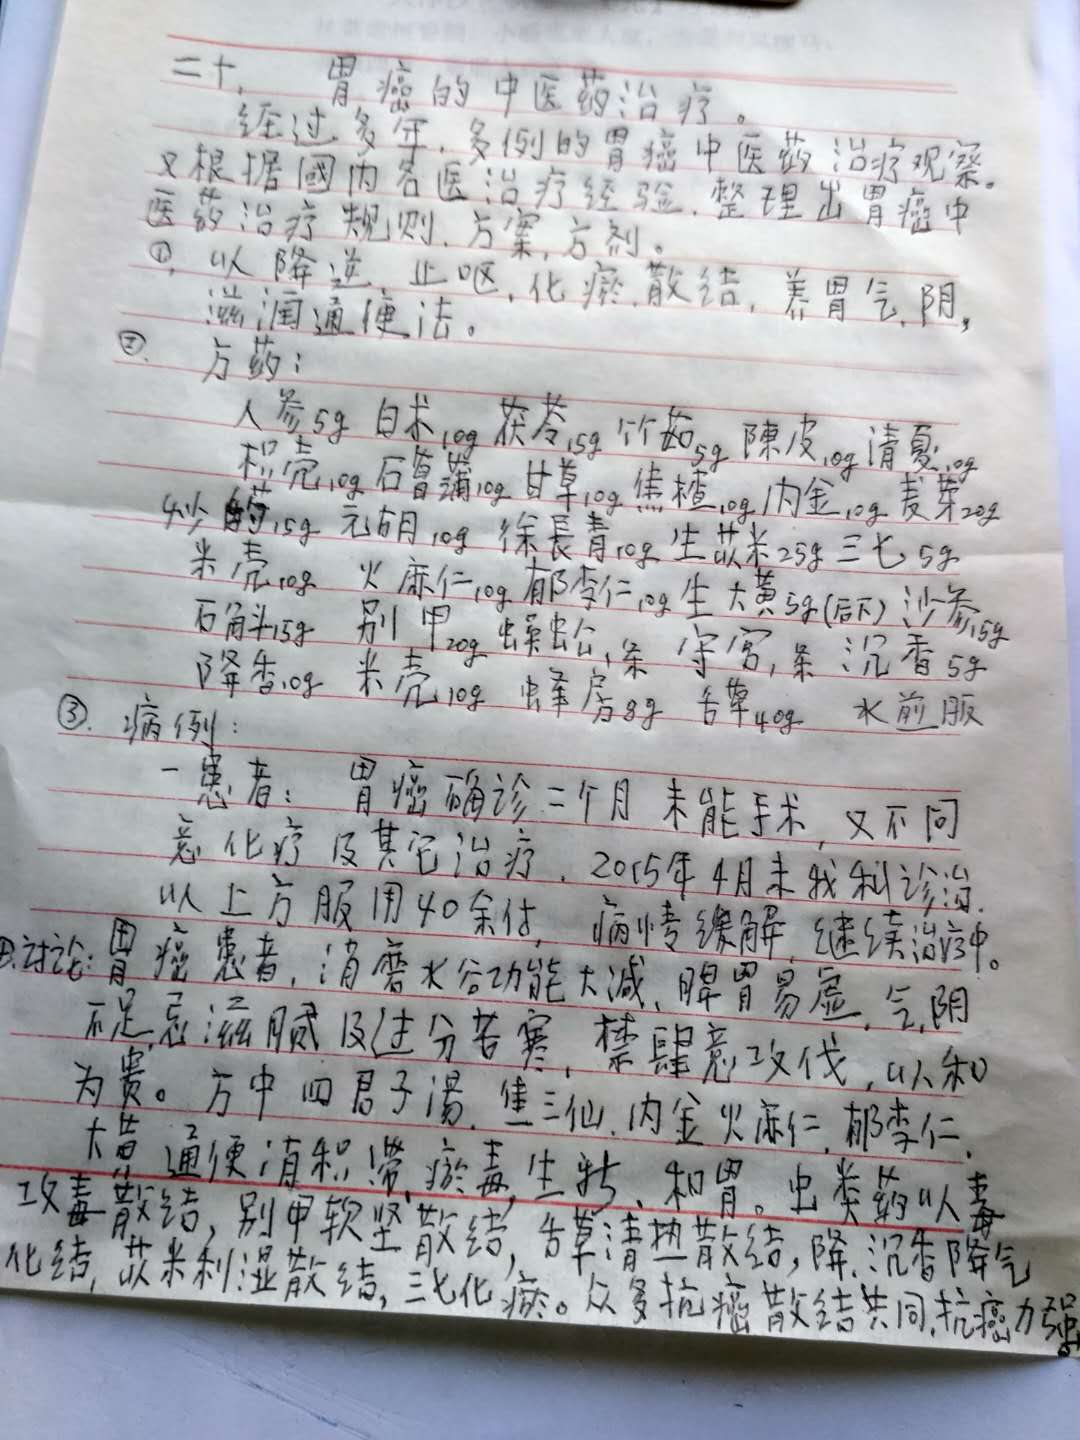 二十、 胃癌的中医药治疗。
经过多年,多例的胃癌中医药治疗观察。
又根据國内名医治疗经验,整理出胃癌中
医药治疗规则,方案,方剂。
①,以降逆,止呕,化瘀,散结,养胃气,阴,
滋润通便法。
②. 方药:
人参5g 白术10g 茯苓15g 竹茹5g 陳皮10g 清夏10g
枳壳10g 石菖蒲10g 甘草10g 焦楂10g 内金10g 麦芽20g
炒 15g 元胡10g 徐長青10g 生苡米25g 三七5g
米壳10g 火麻仁10g 郁李仁10g 生大黄5g(后下) 沙参15g
石角斗15g 别甲20g 蜈蚣1条 守宫1条 沉香5g
降香10g 米壳10g 蜂房8g 舌草40g 水煎服
③. 病例:
一患者: 胃癌确诊二个月未能手术,又不同
意化疗及其它治疗,2015年4月来我科诊治.
以上方服用40余付,病情缓解,继续治疗中。
④.讨论:胃癌患者,消磨水谷功能大减,脾胃易虚,气,阴
不足,忌滋腻及过分苦寒,禁肆意攻伐,以和
为贵。方中四君子湯,焦三仙,内金火麻仁,郁李仁,
大黄通便消积滞,瘀毒,生新、和胃。虫类药以毒
攻毒散结,别甲软坚散结,舌草清热散结,降,沉香降气
化结,苡米利湿散结,三七化瘀。众多抗癌散结共同,抗癌力强。